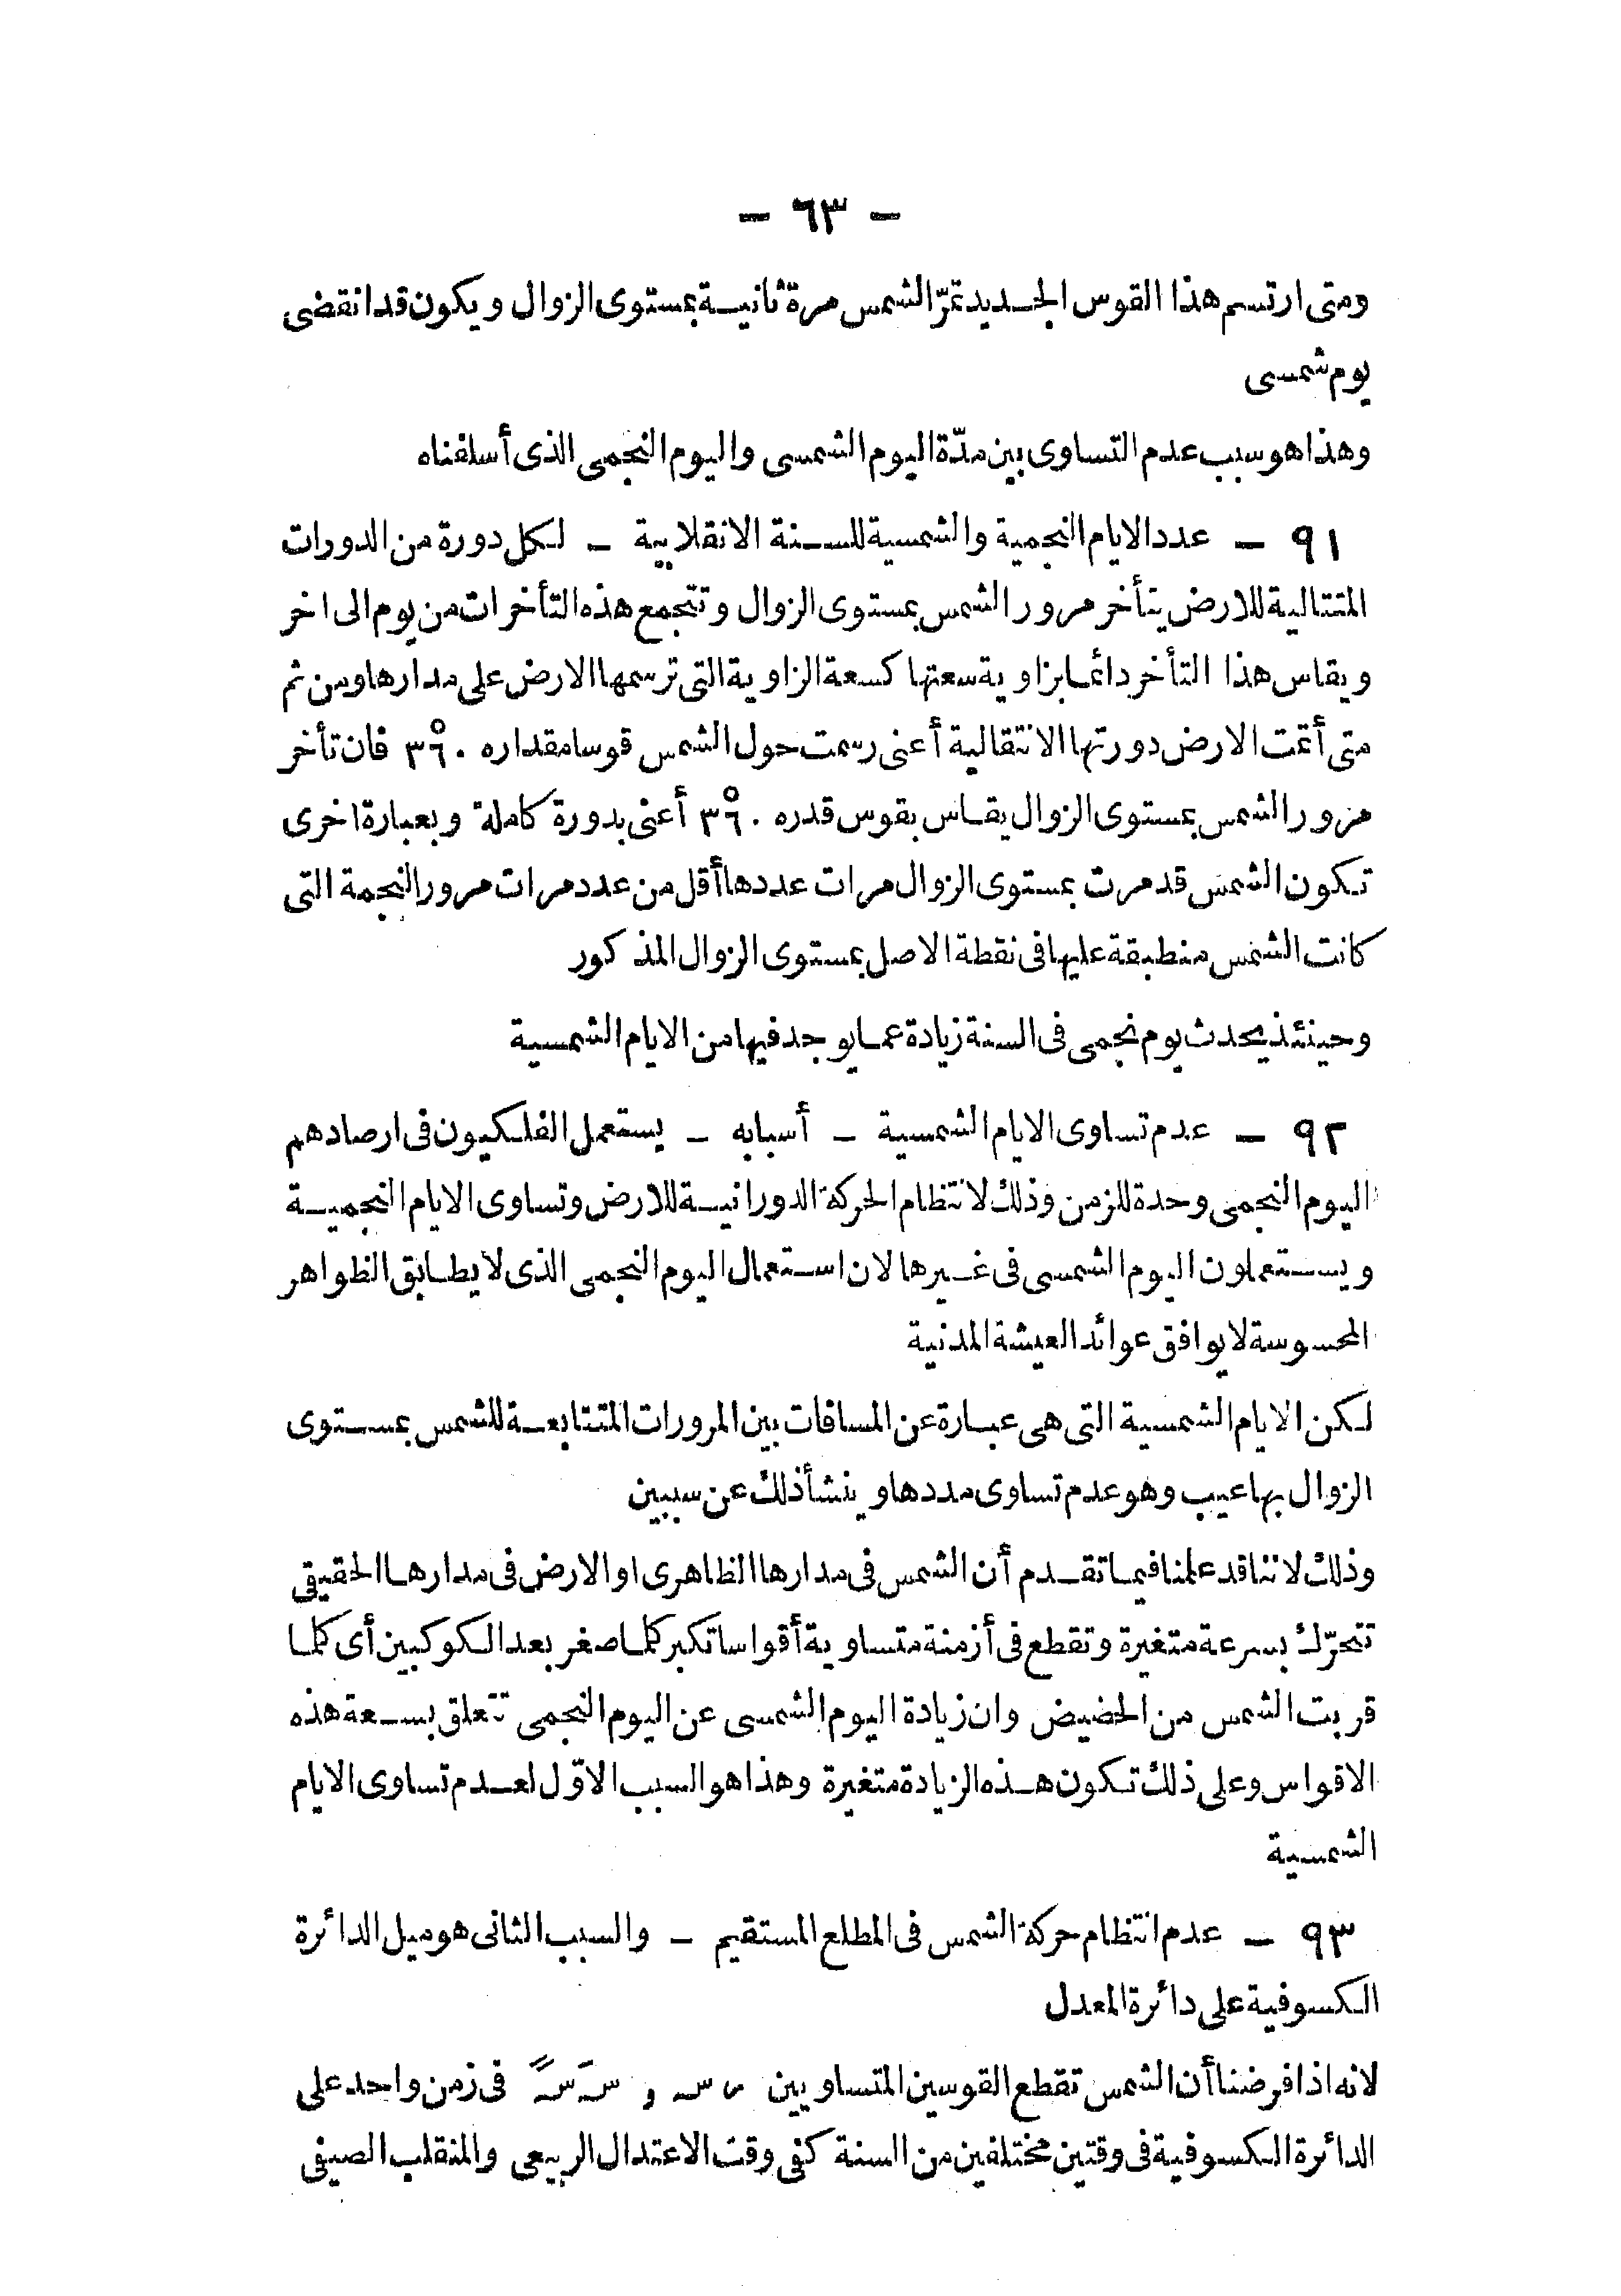 – ٦٣ –
ومتى ارتسم هذا القوس الجديد تمرّ الشمس مرة ثانية بمستوى الزوال ويكون قد انقضى
يوم شمسى
وهذا هو سبب عدم التساوى بين مدّة اليوم الشمسى واليوم النجمى الذى أسلفناه
٩١ – عدد الايام النجمية والشمسية للسنة الانقلابية – لكل دورة من الدورات
المتتالية للارض يتأخر مرور الشمس بمستوى الزوال وتتجمع هذه التأخرات من يوم الى اخر
ويقاس هذا التأخر دائما بزاوية سعتها كسعة الزاوية التى ترسمها الارض على مدارها ومن ثم
متى أتمت الارض دورتها الانتقالية أعنى رسمت حول الشمس قوسا مقداره ٣٦٠° فان تأخر
مرور الشمس بمستوى الزوال يقاس بقوس قدره ٣٦٠° أعنى بدورة كاملة وبعبارة اخرى
تكون الشمس قد مرت بمستوى الزوال مرات عددها أقل من عدد مرات مرور النجمة التى
كانت الشمس منطبقة عليها فى نقطة الاصل بمستوى الزوال المذكور
وحينئذ يحدث يوم نجمى فى السنة زيادة عما يوجد فيها من الايام الشمسية
٩٢ – عدم تساوى الايام الشمسية – أسبابه – يستعمل الفلكيون فى ارصادهم
اليوم النجمى وحدة للزمن وذلك لانتظام الحركة الدورانية للارض وتساوى الايام النجمية
ويستعملون اليوم الشمسى فى غيرها لان استعمال اليوم النجمى الذى لا يطابق الظواهر
المحسوسة لا يوافق عوائد العيشة المدنية
لكن الايام الشمسية التى هى عبارة عن المسافات بين المرورات المتتابعة للشمس بمستوى
الزوال بها عيب وهو عدم تساوى مددها وينشأ ذلك عن سببين
وذلك لاننا قد علمنا فيما تقدم أن الشمس فى مدارها الظاهرى او الارض فى مدارها الحقيقى
تتحرّك بسرعة متغيرة وتقطع فى أزمنة متساوية أقواسا تكبر كلما صغر بعد الكوكبين أى كلما
قربت الشمس من الحضيض وان زيادة اليوم الشمسى عن اليوم النجمى تتعلق بسعة هذه
الاقواس وعلى ذلك تكون هذه الزيادة متغيرة وهذا هو السبب الاوّل لعدم تساوى الايام
الشمسية
٩٣ – عدم انتظام حركة الشمس فى المطلع المستقيم – والسبب الثانى هو ميل الدائرة
الكسوفية على دائرة المعدل
لانه اذا فرضنا أن الشمس تقطع القوسين المتساويين ‎ر س و سَ سً فى زمن واحد على
الدائرة الكسوفية فى وقتين مختلفين من السنة كفى وقت الاعتدال الربيعى والمنقلب الصيفى